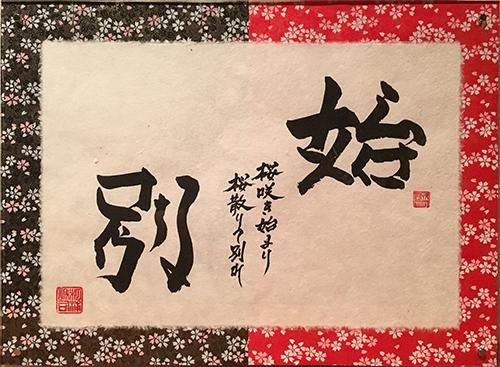 始
桜咲き始まり
桜散りて別れ
別